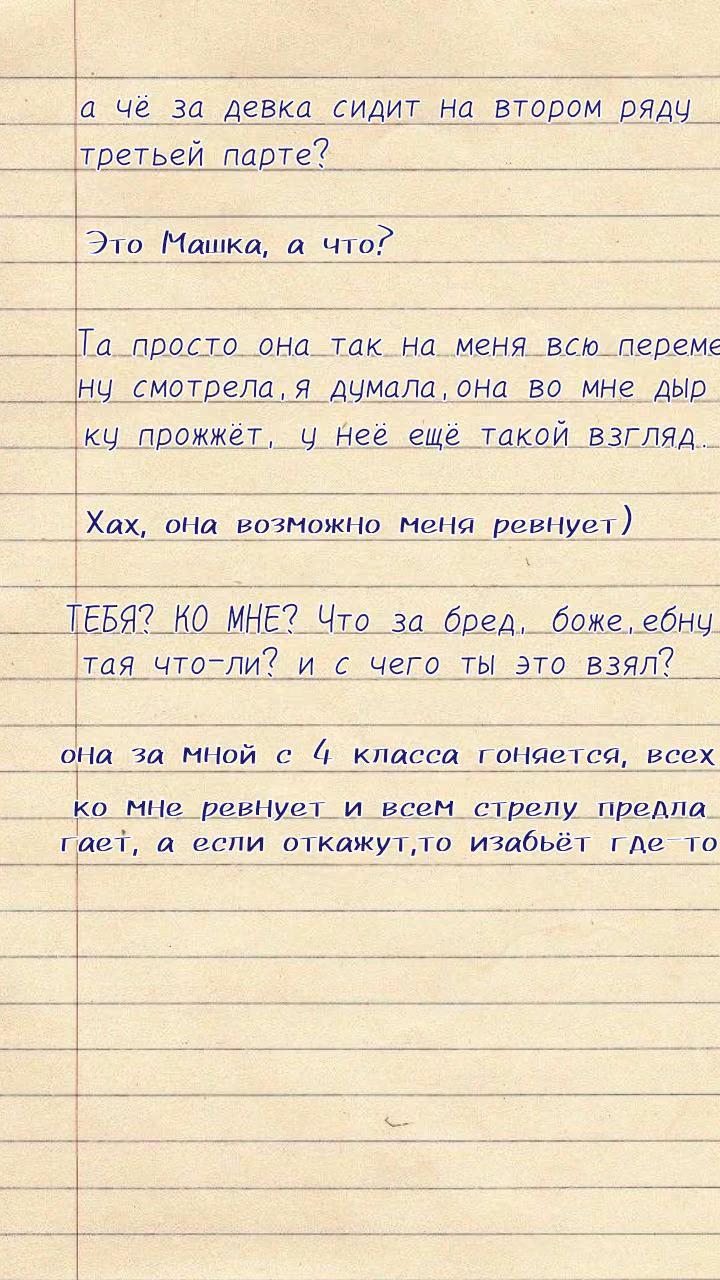 а чё за девка сидит на втором ряду
третьей парте?
Это Машка, а что?
Та просто она так на меня всю переме
ну смотрела, я думала, она во мне дыр
ку прожжёт, у неё ещё такой взгляд.
Хах, она возможно меня ревнует)
ТЕБЯ? КО МНЕ? Что за бред, боже, ебну
тая что-ли? и с чего ты это взял?
она за мной с 4 класса гоняется, всех
ко мне ревнует и всем стрелу предла
гает, а если откажут,то изабьёт где-то